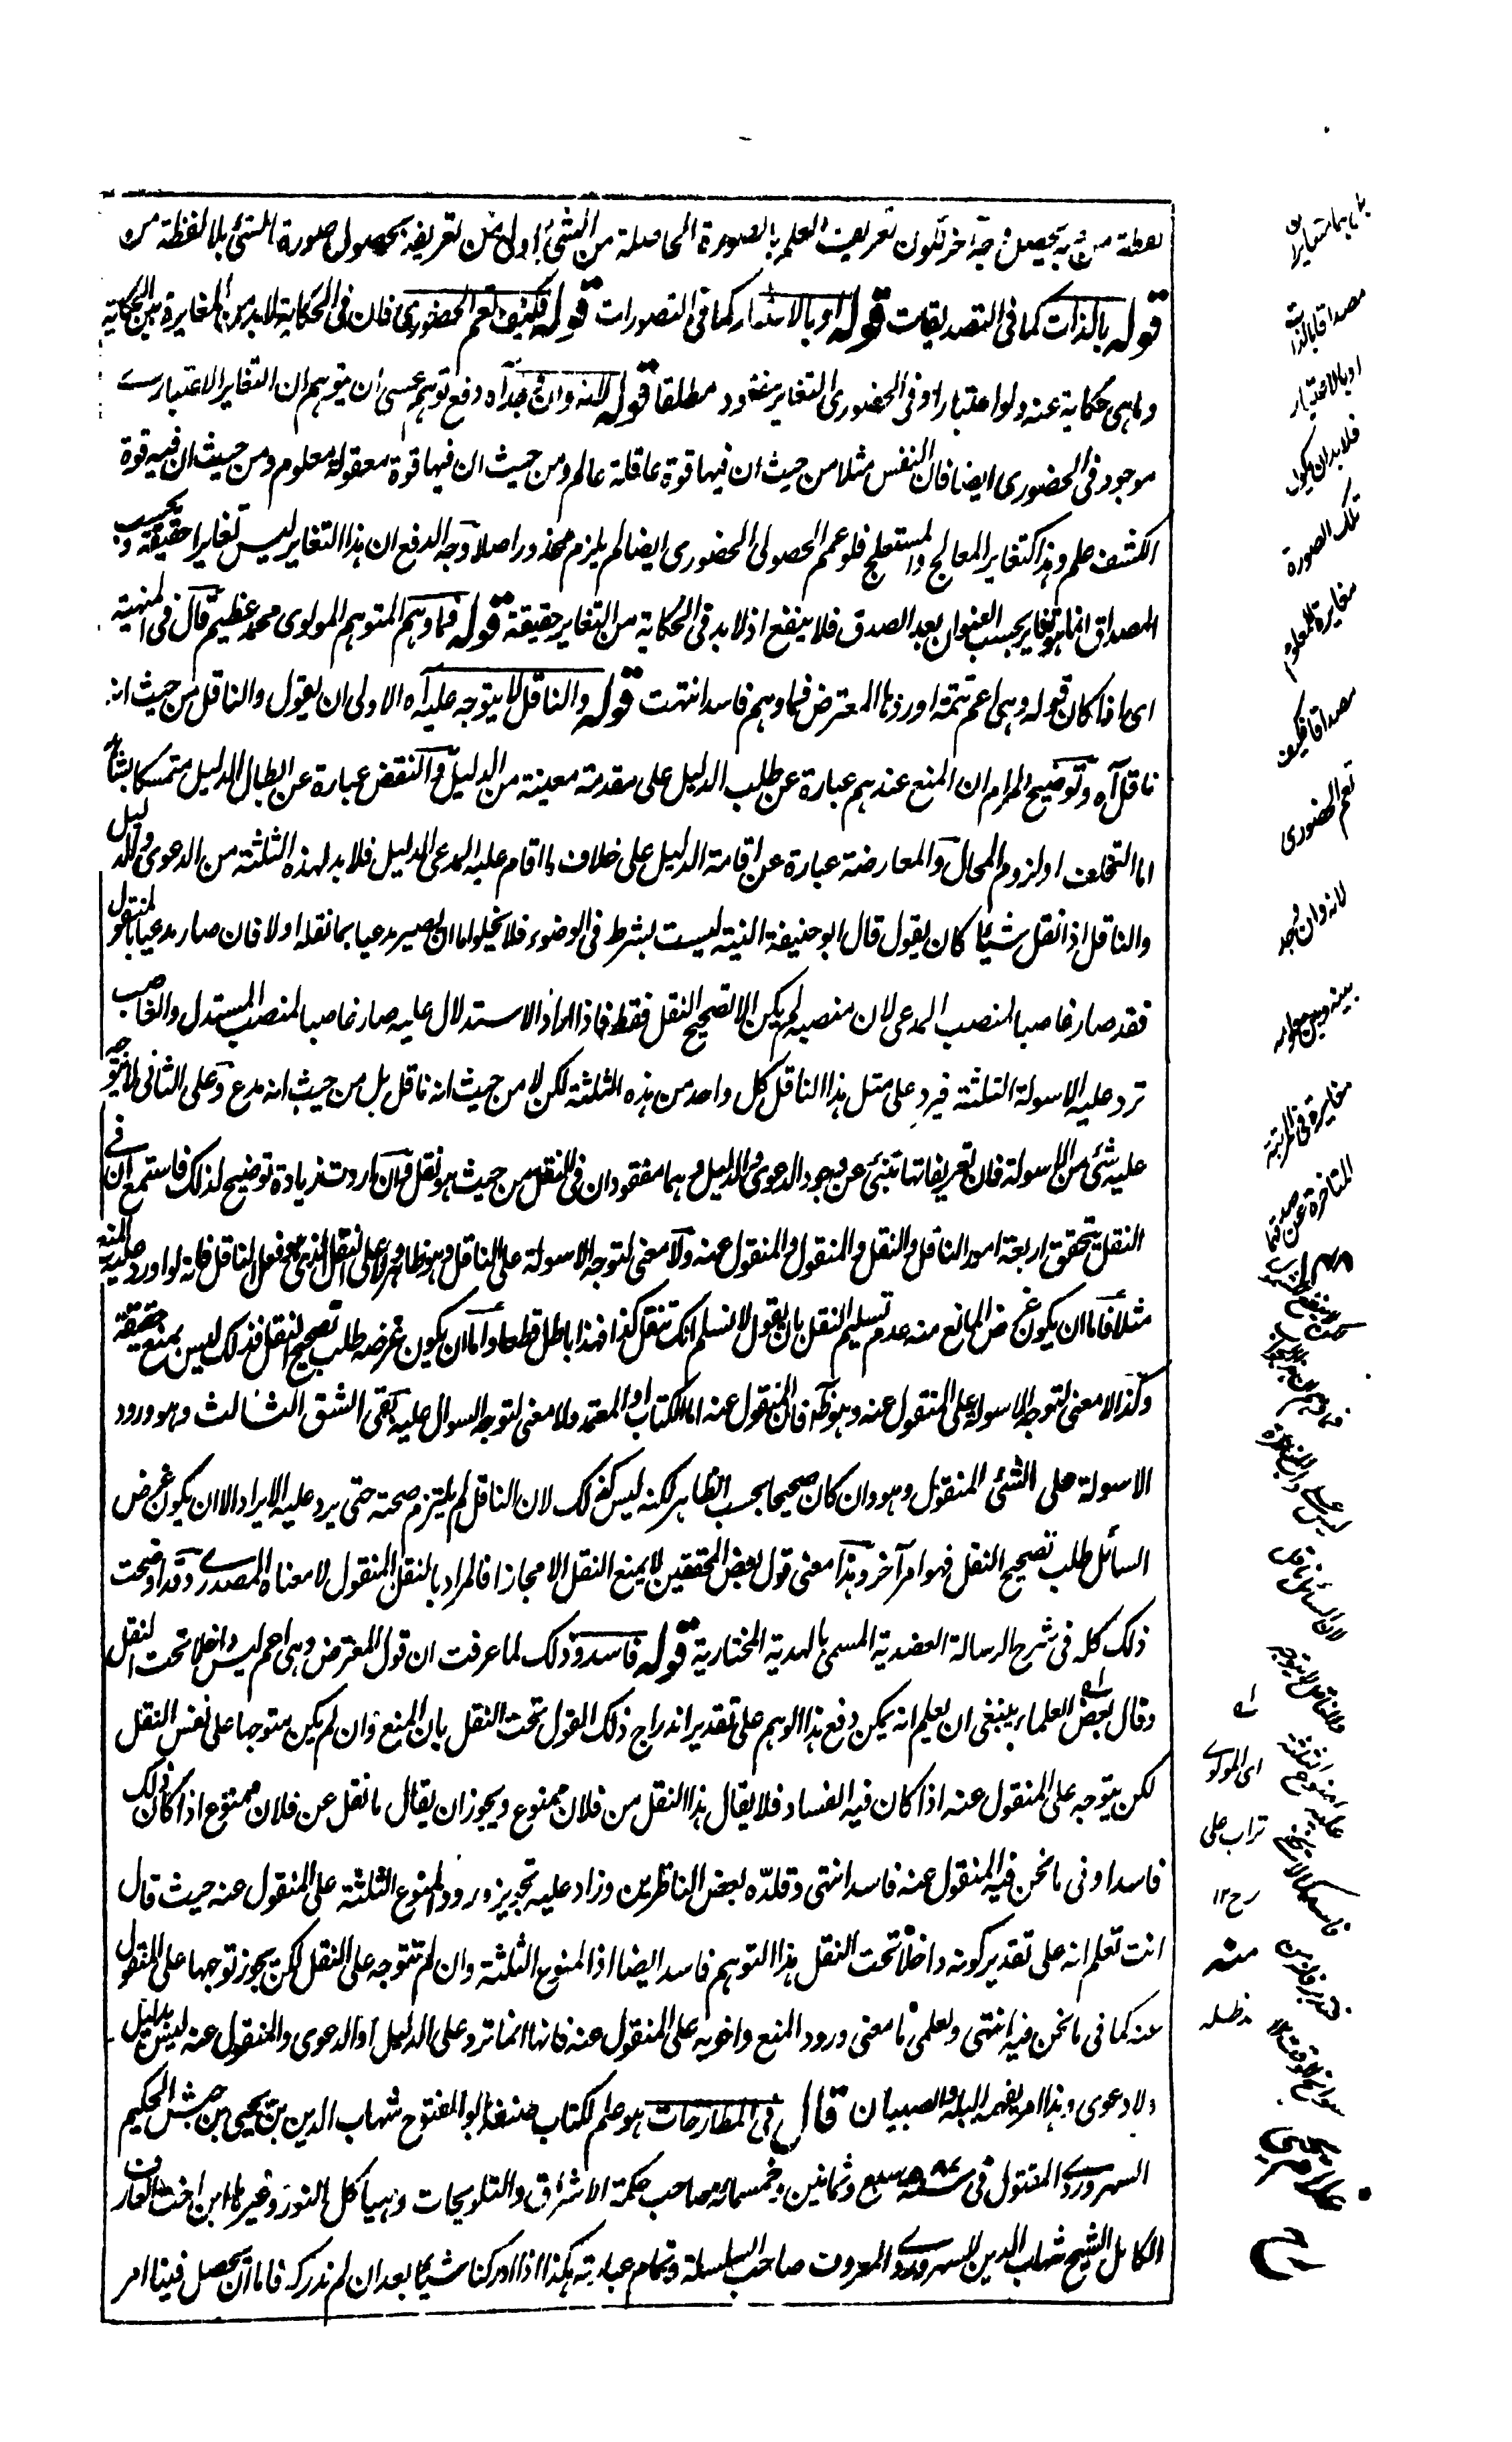 لفظة من فيه يحصل من جهة اخرى كون تعريف العلم بالصورة الحاصلة من الشئ اولى من تعريفه بحصول صورة الشئ بلا لفظة من
قوله بالذات كما فى التصديقات قوله او بالاعتبار كما فى التصورات قوله فكيف تعم الحضورى فان فى الحكاية لابد من المغايرة بين الحكاية
وما هى حكاية عنه ولو اعتبارا وفى الحضورى التغاير مفقود مطلقا قوله لانه وان وجد آه دفع توهم عسى ان يتوهم ان التغاير الاعتبارى
موجود فى الحضورى ايضا فان النفس مثلا من حيث ان فيها قوة عاقلة عالم ومن حيث ان فيها قوة معقولة معلوم ومن حيث ان فيه قوة
الكشف علم وهذا كتغاير المعالج والمستعلج فلو عمم الحصولى الحضورى ايضا لم يلزم محذور اصلا وجه الدفع ان هذا التغاير ليس تغايرا حقيقة وبحسب
المصداق انما هو تغاير بحسب العنوان بعد الصدق فلا ينفع اذ لا بد فى الحكاية من التغاير حقيقة قوله فما وهم المتوهم المولوى محمد عظيم قال فى المنهية
اى اذا كان قوله وهى اعم تتمة اوردها المعترض فما وهم فاسد انتهت قوله والناقل لا يتوجه عليه آه الاولى ان يقول والناقل من حيث انه
ناقل آه وتوضيح المرام ان المنع عندهم عبارة عن طلب الدليل على مقدمة معينة من الدليل والنقض عبارة عن ابطال الدليل متمسكا بشاهد
اما التخلف او لزوم المحال والمعارضة عبارة عن اقامة الدليل على خلاف ما اقام عليه المدعى الدليل فلا بد لهذه الثلثة من الدعوى والدليل
والناقل اذا نقل شيئا كان يقول قال ابو حنيفة النية ليست بشرط فى الوضوء فلا يخلو اما ان يصير مدعيا بما نقله او لا فان صار مدعيا بالمنقول
فقد صار غاصبا لمنصب المدعى لان منصبه لم يكن الا تصحيح النقل فقط فاذا اراد الاستدلال عليه صار غاصبا لمنصب المستدل والغاصب
ترد عليه الاسولة الثلثة فيرد على مثل هذا الناقل كل واحد من هذه الثلثة لكن لا من حيث انه ناقل بل من حيث انه مدع وعلى الثانى لا يتوجه
عليه شئ من الاسولة فان تعريفاتها تنبئ عن وجود الدعوى والدليل وهما مفقودان فى النقل من حيث هو نقل وان اردت زيادة توضيح لذلك فاستمع ان فى
النقل يتحقق اربعة امور الناقل والنقل والمنقول والمنقول عنه ولا معنى لتوجه الاسولة على الناقل وهو ظاهر ولا على النقل الذى هو فعل الناقل فانه لو اورد عليه المنع
مثلا فاما ان يكون غرض المانع منه عدم تسليم النقل بان يقول لا نسلم انك تنقل كذا فهذا باطل قطعا واما ان يكون غرضه طلب تصحيح النقل فذلك ليس بمنع حقيقة
وكذا لا معنى لتوجه الاسولة على المنقول عنه وهو ظ فان المنقول عنه اما الكتاب او المعتمد ولا معنى لتوجه السوال عليه بقى الشق الثالث وهو ورود
الاسولة على الشئ المنقول وهو وان كان صحيحا بحسب الظاهر لكنه ليس كذلك لان الناقل لم يلتزم صحته حتى يرد عليه الايراد الا ان يكون غرض
السائل طلب تصحيح النقل فهو امر آخر وهذا معنى قول بعض المحققين لا يمنع النقل الا مجازا فالمراد بالنقل المنقول لا معناه المصدرى وقد اوضحت
ذلك كله فى شرح الرسالة العضدية المسمى بالهدية المختارية قوله فاسد وذلك لما عرفت ان قول المعترض وهى اعم ليس داخلا تحت النقل
وقال بعض العلماء ينبغى ان يعلم انه يمكن دفع هذا الوهم على تقدير اندراج ذلك القول تحت النقل بان المنع وان لم يكن متوجها على نفس النقل
لكن يتوجه على المنقول عنه اذا كان فيه الفساد فلا يقال هذا النقل من فلان ممنوع ويجوز ان يقال ما نقل عن فلان ممنوع اذا كان ذلك
فاسدا وفى ما نحن فيه المنقول عنه فاسد انتهى وقلده بعض الناظرين وزاد عليه تجويز ورود المنوع الثلثة على المنقول عنه حيث قال
انت تعلم انه على تقدير كونه داخلا تحت النقل هذا التوهم فاسد ايضا اذ المنوع الثلثة وان لم تتوجه على النقل لكن يجوز توجهها على المنقول
عنه كما فى ما نحن فيه انتهى ولعلمى ما معنى ورود المنع واخويه على المنقول عنه فانها انما ترد على الدليل او الدعوى والمنقول عنه ليس بدليل
ولا دعوى وهذا امر يفهمه البله والصبيان قال فى المطارحات هو علم لكتاب صنفه ابو الفتوح شهاب الدين بن يحيى بن حبش الحكيم
السهروردى المقتول فى سنة ٥٨٧ سبع وثمانين وخمسمائة صاحب حكمة الاشراق والتلويحات وهياكل النور وغيرها ابن اخت العارف
الكامل الشيخ شهاب الدين السهروردى المعروف صاحب السلسلة وتمام عبارته هكذا اذا ادركنا شيئا بعد ان لم ندركه فاما ان يحصل فينا امر
مصداقا بالذات
او بالاعتبار
فلا بد ان يكون
تلك الصورة
مغايرة للمعلوم
مصداقا فكيف
تعم الحضورى
لانه وان وجد
مغايرة فى المرتبة
المتأخرة عن صدقها
اى المولوى
تراب على
رح ١٢
منه
مد ظله